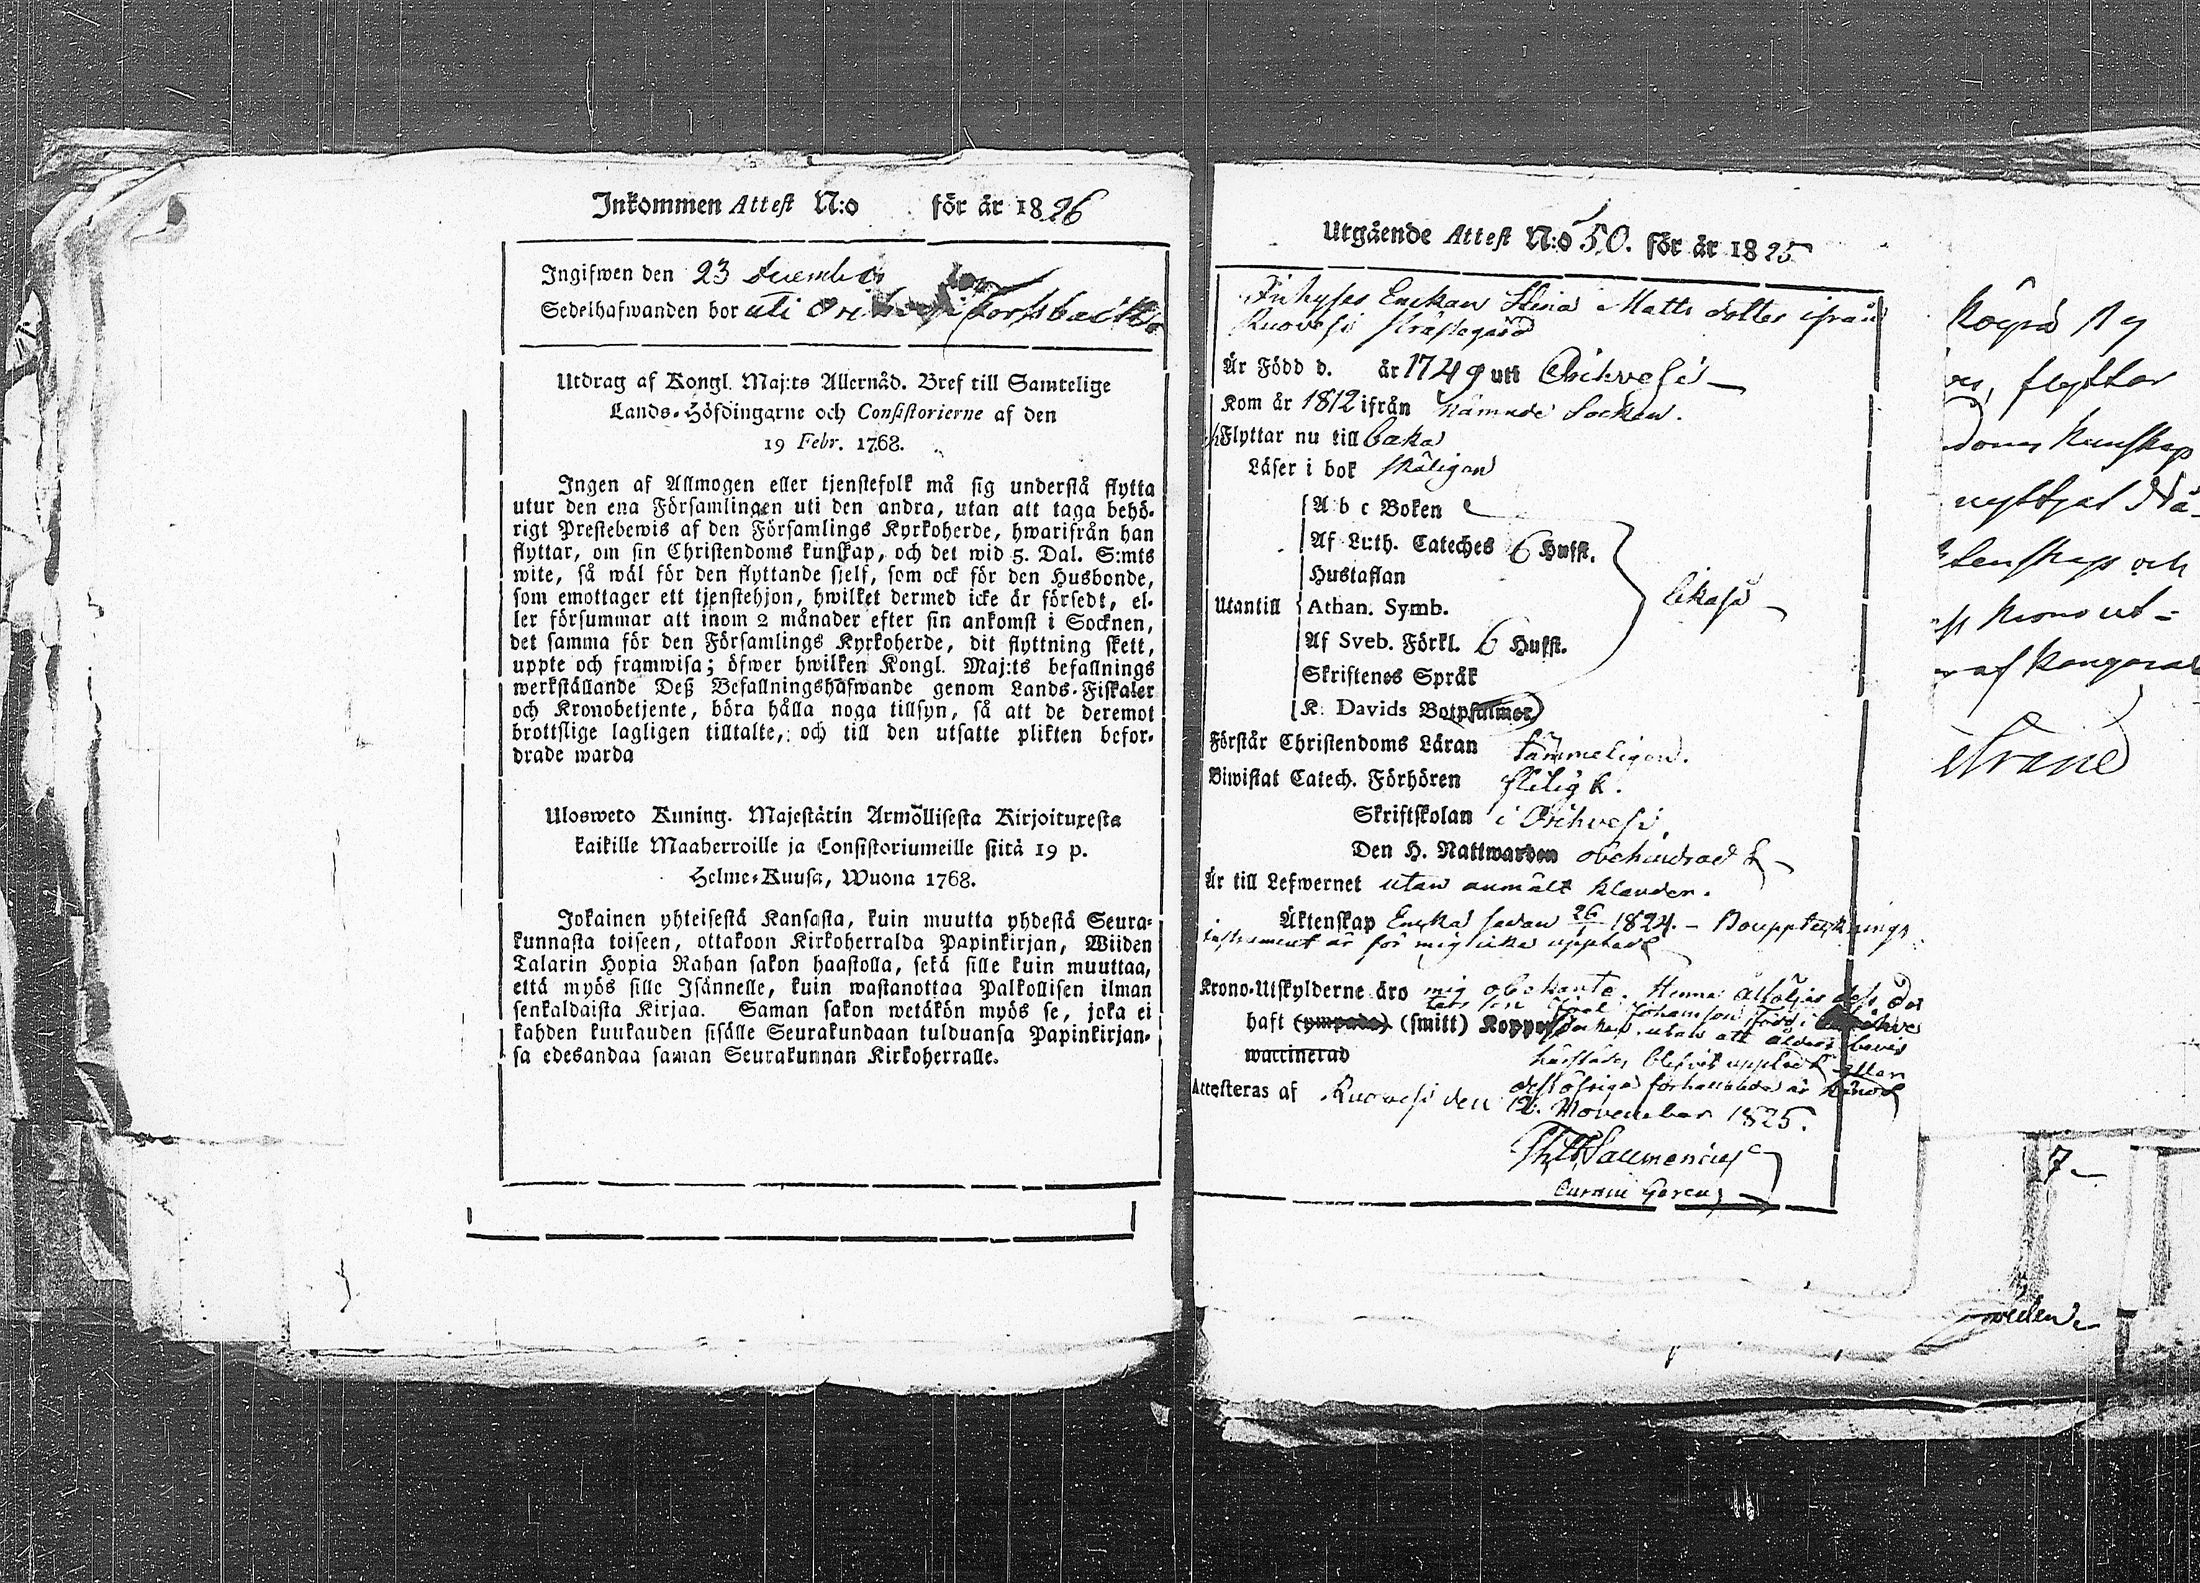 Inkommen Attest N:o för år 1826
Ingifwen den 23 December
Sedelhafwanden bor uti
Utdrag af Kongl. Maj:ts Allernåd. Bref till Samtelige
Lands-Höfdingarne och Consistorierne af den
19 Febr. 1768.
Ingen af Allmogen eller tjenstefolk må sig understå flytta
utur den ena Församlingen uti den andra, utan att taga behö-
rigt Prestebewis af den Församlings Kyrkoherde, hwarifrån han
flyttar, om sin Christendoms kunskap, och det wid 5. Dal. S:mts
wite, så wäl för den flyttande sjelf, som ock för den Husbonde,
som emottager ett tjenstehjon, hwilket dermed icke är försedt, el-
ler försummar att inom 2 månader efter sin ankomst i Socknen,
det samma för den Församlings Kyrkoherde, dit flyttning skett,
uppte och framwisa; öfwer hwilken Kongl. Maj:ts befallnings
werkställande Deß Befallningshafwande genom Lands-Fiskaler
och Kronobetjente, böra hålla noga tillsyn, så att de deremot
brottslige lagligen tilltalte, och till den utsatte plikten befor-
drade warda
Ulosweto Kuning. Majestätin Armöllisesta Kirjoituxesta
kaikille Maaherroille ja Consistoriumeille siitä 19 p.
Helme-Kuusa, Wuona 1768.
Jokainen yhteisestä Kansasta, kuin muutta yhdestä Seura-
kunnasta toiseen, ottakoon Kirkoherralda Papinkirjan, Wiiden
Talarin Hopia Rahan sakon haastolla, sekä sille kuin muuttaa,
että myös sille Isännelle, kuin wastanottaa Palkollisen ilman
senkaldaista Kirjaa. Saman sakon wetäkön myös se, joka ei
kahden kuukauden sisälle Seurakundaan tulduansa Papinkirjan-
sa edesandaa saman Seurakunnan Kirkoherralle.
Utgående Attest N:o 50. för år 1825
Inhyses Enkan Stina Matts dotter ifrån
Ruovesi Prästegård
Är Född d. år 1749 uti Orihvesi
Kom år 1812 ifrån nämnde Socken.
Flyttar nu till baka
Läser i bok skäligen
A b c Boken
Af Luth. Cateches 6 Hufst.
Hustaflan
Utantill Athan. Symb. likaså
Af Sveb. Förkl. 6 Hufst.
Skriftenes Språk
K. Davids Botpsalmer
Förstår Christendoms Läran tämmeligen.
Biwistat Catech. Förhören flitigt.
Skriftskolan i Orihvesi
Den H. Nattwarden obehindrad
Är till Lefwernet utan anmält klander.
Äktenskap Enka sedan 26/1 1824. – Boupptecknings
instrument är för mig icke uppvist
Krono-Utskylderne äro mig obekante. Henne åtföljer dess dot
ters son Johansson född i
haft (ympade) (smitt) Koppor utan att ålders bevis
waccinerad blifvit eller
dess öfriga förhållande är känd
Attesteras af Ruovesi den 12 November 1825.
Saumenius
flyttar
kunskap
nyttjat Nå-
och
Krono ut-
af
7